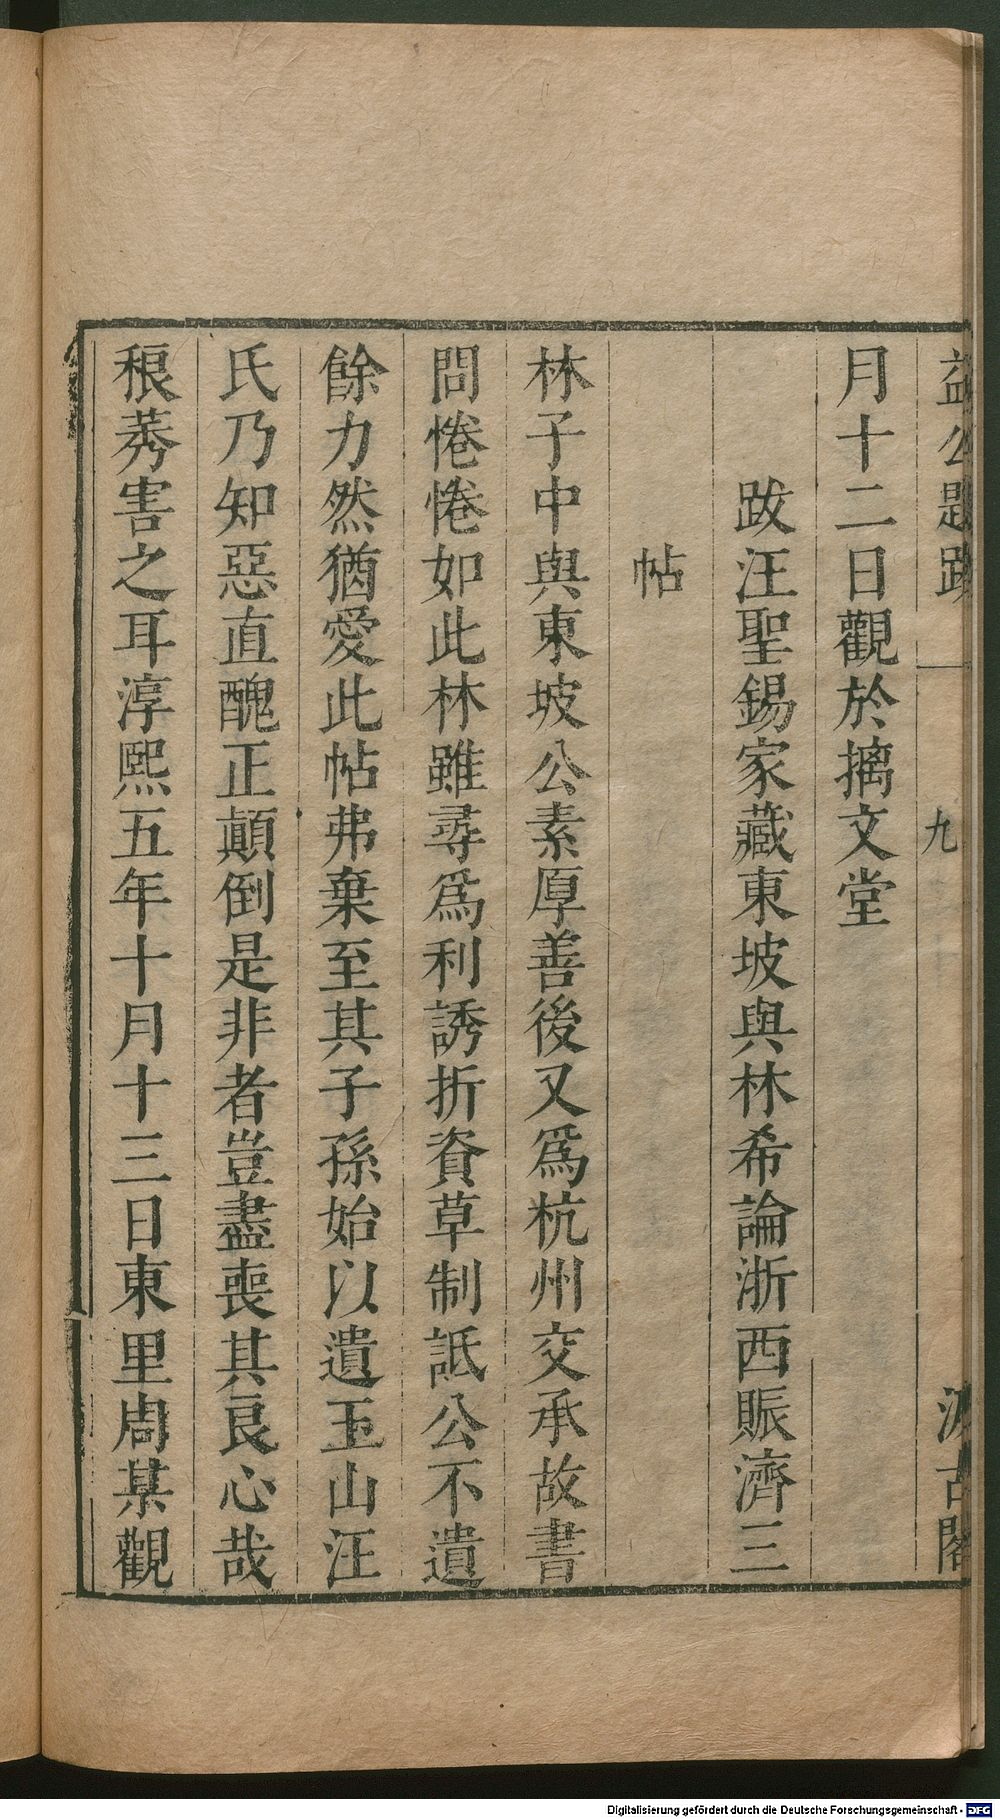 益公題跋 九 汲古閣
月十二日觀於摛文堂
跋汪聖錫家藏東坡與林希論浙西賑濟三
帖
林子中與東坡公素厚善後又爲杭州交承故書
問惓惓如此林雖尋爲利誘折資草制詆公不遺
餘力然猶愛此帖弗棄至其子孫始以遺玉山汪
氏乃知惡直醜正顛倒是非者豈盡喪其良心哉
稂莠害之耳淳熙五年十月十三日東里周某觀
Digitalisierung gefördert durch die Deutsche Forschungsgemeinschaft - DFG